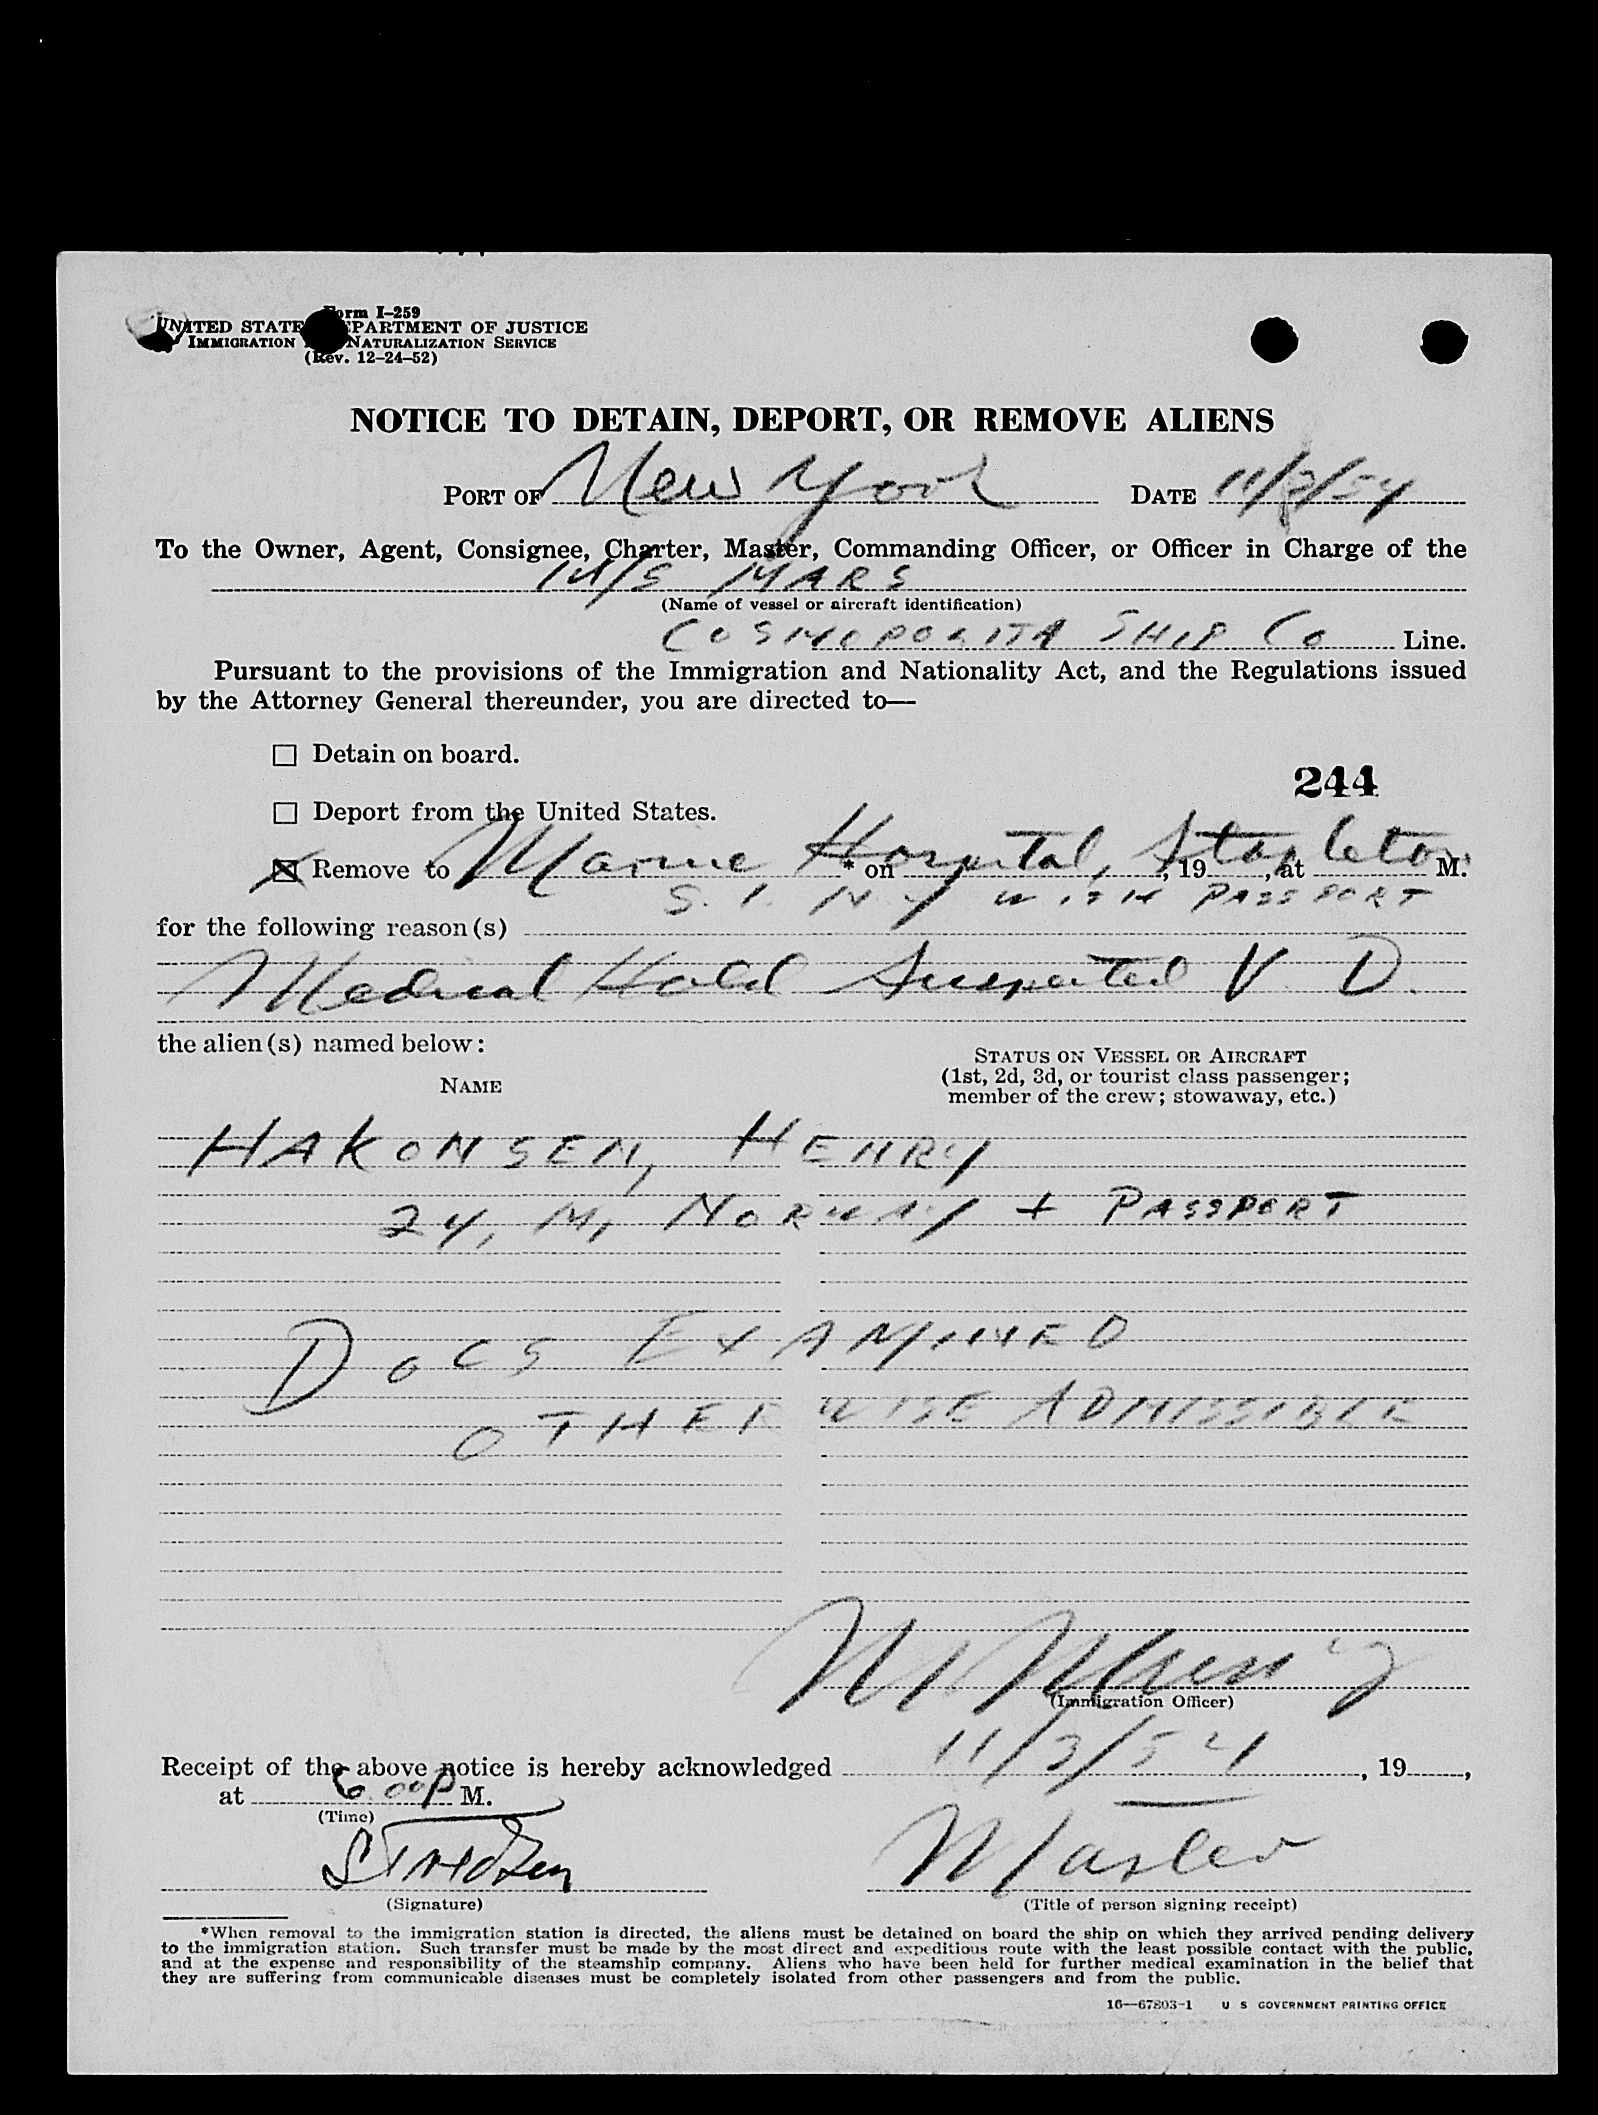 Form I-259
UNITED STATES DEPARTMENT OF JUSTICE
IMMIGRATION NATURALIZATION SERVICE
(Rev. 12-24-52)
NOTICE TO DETAIN, DEPORT, OR REMOVE ALIENS
PORT OF New York DATE 11/3/54
To the Owner, Agent, Consignee, Charter, Master, Commanding Officer, or Officer in Charge of the
M/S MARS
(Name of vessel or aircraft identification)
COSMOPOLITA SHIP CO Line.
Pursuant to the provisions of the Immigration and Nationality Act, and the Regulations issued
by the Attorney General thereunder, you are directed to—
☐ Detain on board.
244
☐ Deport from the United States.
☒ Remove to Marine Hospital, Stapleton * on , 19 , at M.
S. I. N Y WITH PASSPORT
for the following reason(s)
Medical Hold Suspected V. D.
the alien(s) named below:
STATUS ON VESSEL OR AIRCRAFT
(1st, 2d, 3d, or tourist class passenger;
member of the crew; stowaway, etc.)
NAME
HAKONSEN, HENRY
24, M, NORWAY + PASSPORT
DOCS EXAMINED
OTHERWISE ADMISSIBLE
(Immigration Officer)
Receipt of the above notice is hereby acknowledged 11/3/54, 19 ,
at 6 00 P M.
(Time)
Master
(Signature) (Title of person signing receipt)
*When removal to the immigration station is directed, the aliens must be detained on board the ship on which they arrived pending delivery
to the immigration station. Such transfer must be made by the most direct and expeditious route with the least possible contact with the public,
and at the expense and responsibility of the steamship company. Aliens who have been held for further medical examination in the belief that
they are suffering from communicable diseases must be completely isolated from other passengers and from the public.
16—67803-1 U S GOVERNMENT PRINTING OFFICE